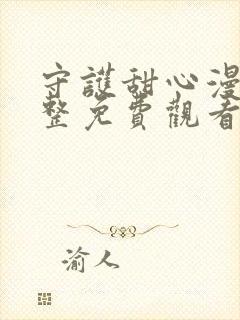 守護甜心漫
整免費觀看
渝人